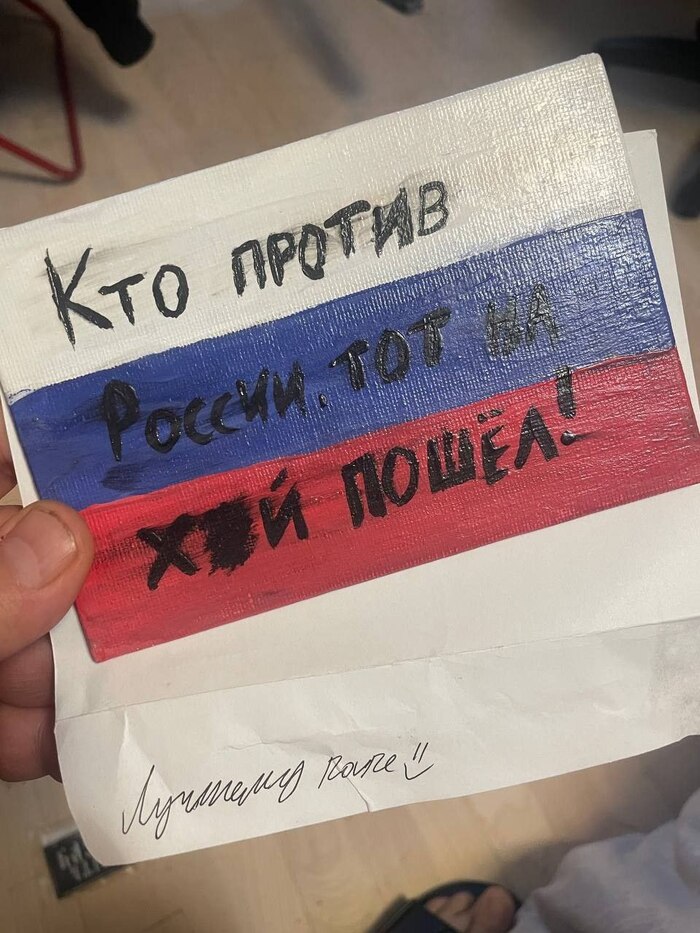 Кто против
России. тот на
х�й пошёл!
Лучшему папе